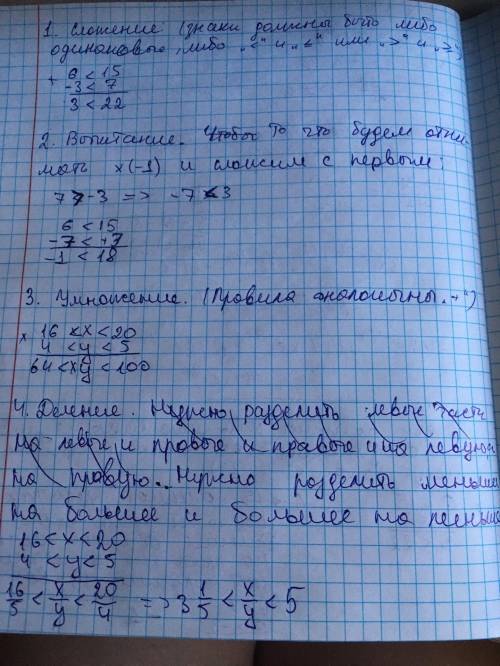 1. Сложение (знаки должны быть либо
одинаковые, либо „<“ и „≤“ или „>“ и „≥“)
+ 6 < 15
-3 < 7
3 < 22
2. Вычитание. Чтобы То что будем отни-
мать x(-1) и сложим с первым:
7 > -3 => -7 < 3
6 < 15
-7 < +7
-1 < 18
3. Умножение. (Правила аналогичны „+“)
x 16 < x < 20
4 < y < 5
64 < xy < 100
4. Деление. Нужно разделить левые части
на левые и правые и правые и на левую
на правую. Нужно разделить меньшее
на большее и большее на меньше
16 < x < 20
4 < y < 5
16/5 < x/y < 20/4 => 3 1/5 < x/y < 5